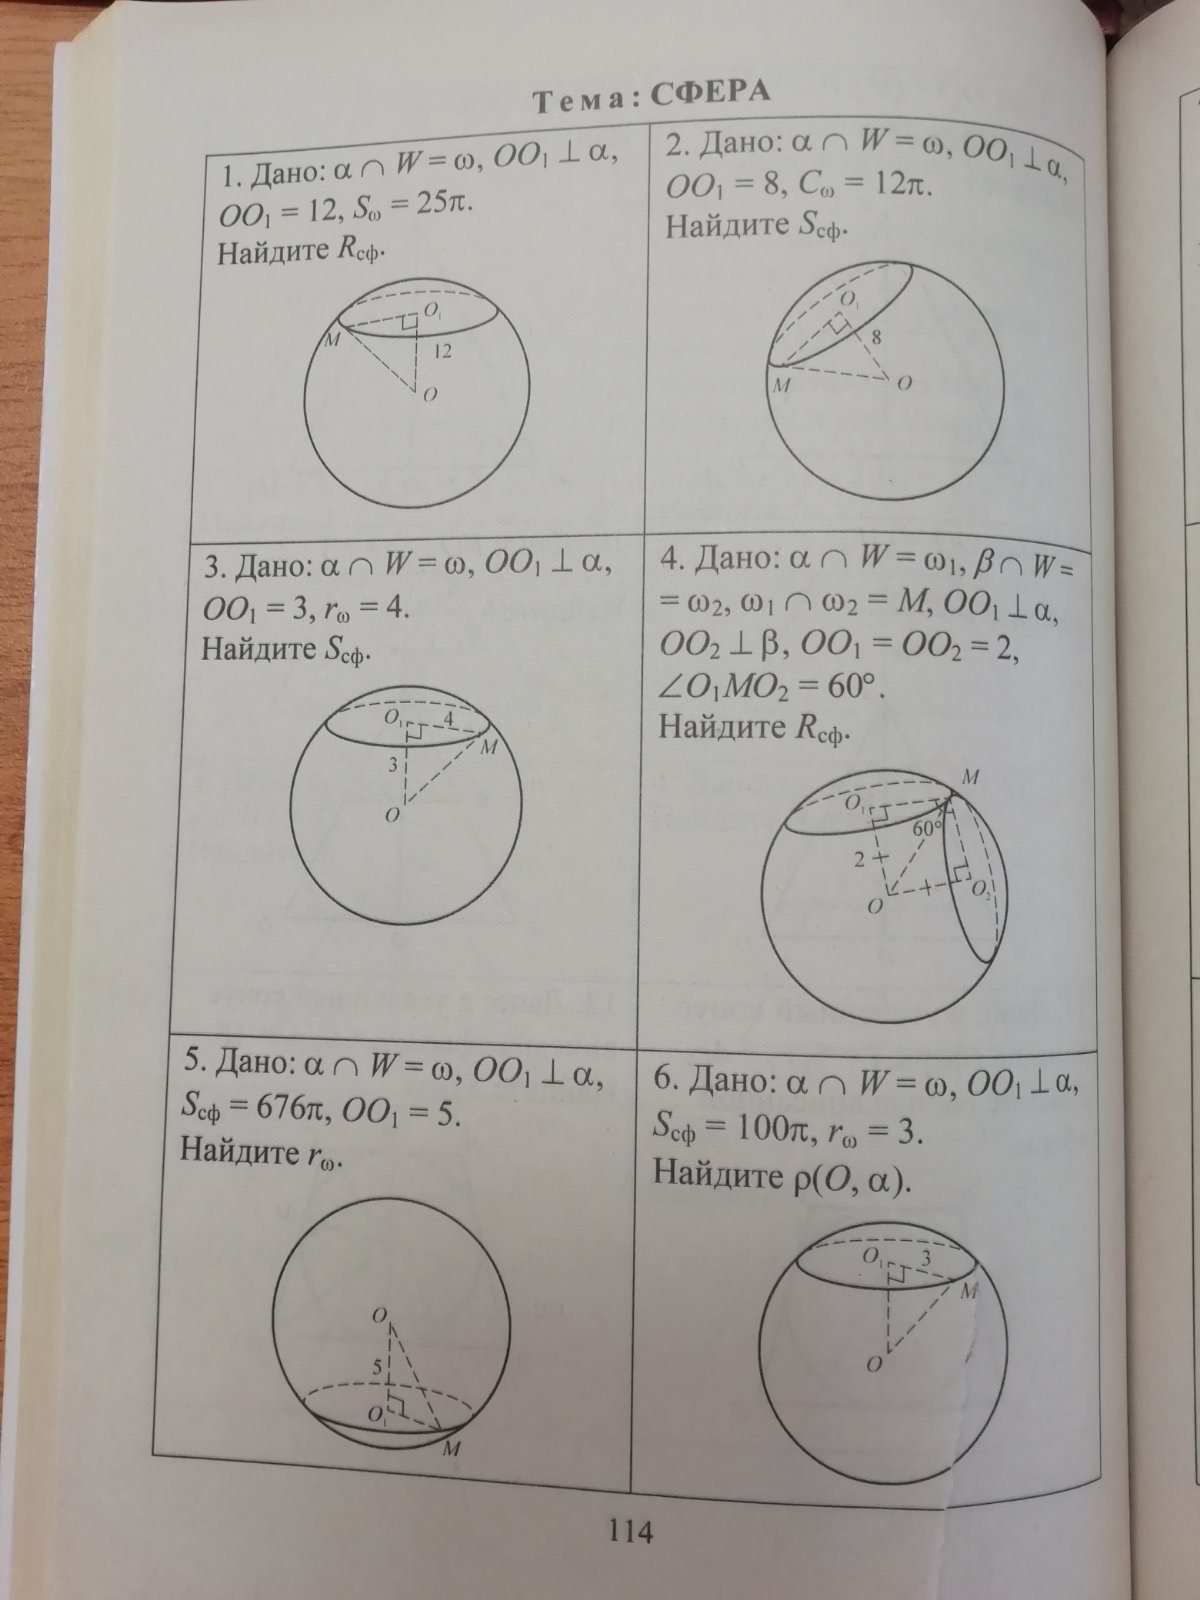 Тема: СФЕРА
1. Дано: α ∩ W = ω, OO₁ ⊥ α,
OO₁ = 12, Sω = 25π.
Найдите Rсф.
M
O₁
12
O
2. Дано: α ∩ W = ω, OO₁ ⊥ α,
OO₁ = 8, Cω = 12π.
Найдите Sсф.
O₁
8
M
O
3. Дано: α ∩ W = ω, OO₁ ⊥ α,
OO₁ = 3, rω = 4.
Найдите Sсф.
O₁
4
M
3
O
4. Дано: α ∩ W = ω₁, β ∩ W =
= ω₂, ω₁ ∩ ω₂ = M, OO₁ ⊥ α,
OO₂ ⊥ β, OO₁ = OO₂ = 2,
∠O₁MO₂ = 60°.
Найдите Rсф.
M
O₁
60°
2
O
O₂
5. Дано: α ∩ W = ω, OO₁ ⊥ α,
Sсф = 676π, OO₁ = 5.
Найдите rω.
O
5
O₁
M
6. Дано: α ∩ W = ω, OO₁ ⊥ α,
Sсф = 100π, rω = 3.
Найдите ρ(O, α).
O₁
3
M
O
114